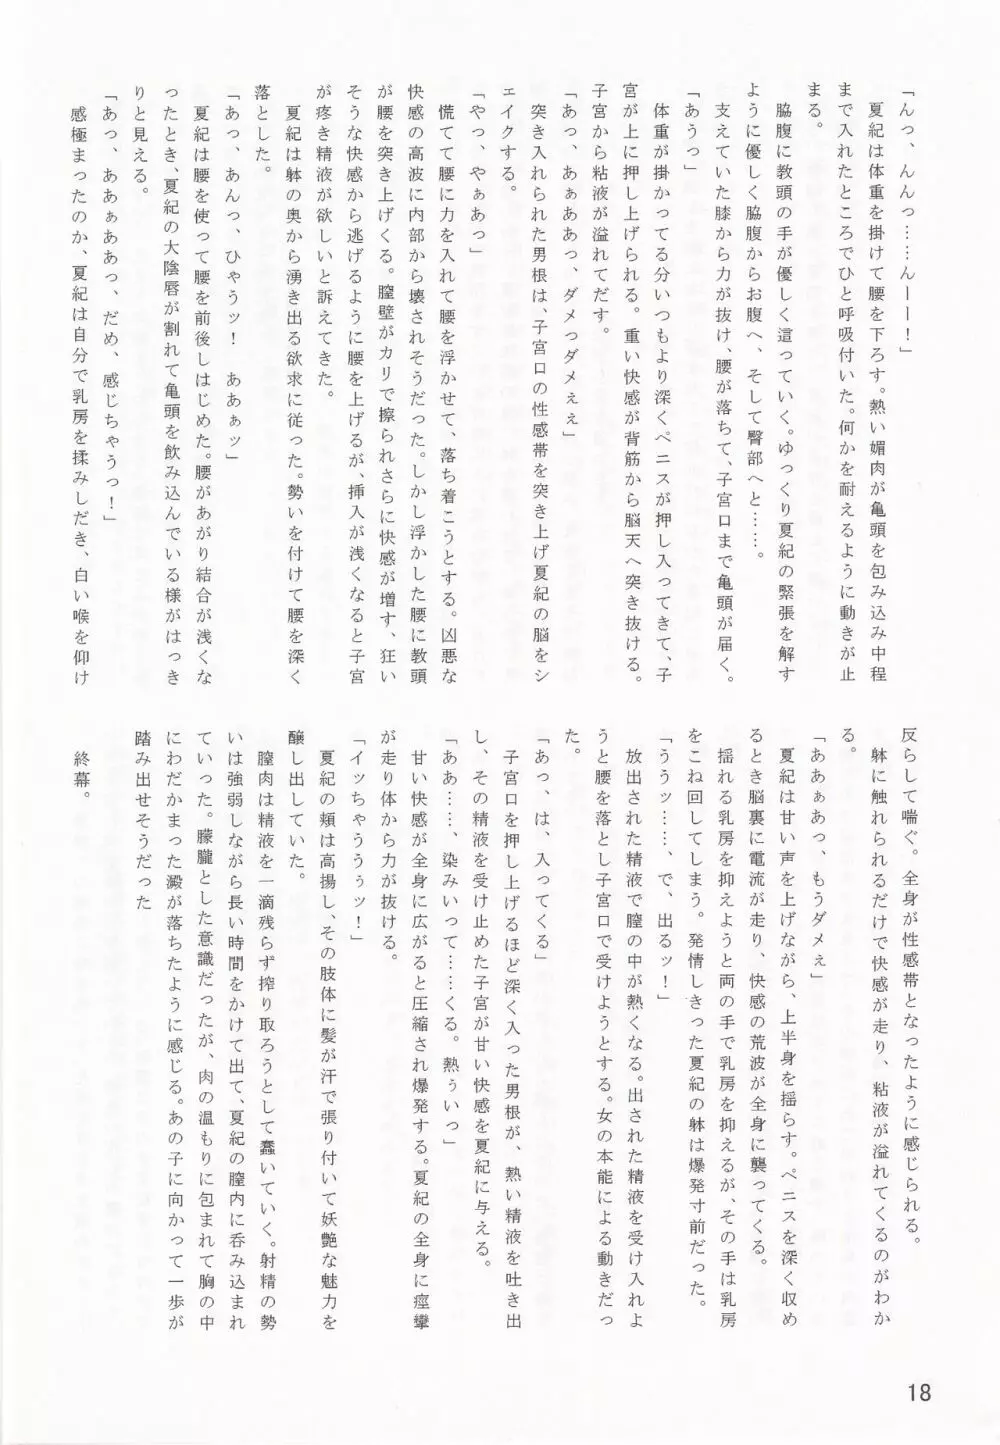 「んっ、んんっ……んーー！」
夏紀は体重を掛けて腰を下ろす。熱い媚肉が亀頭を包み込み中程
まで入れたところでひと呼吸付いた。何かを耐えるように動きが止
まる。
脇腹に教頭の手が優しく這っていく。ゆっくり夏紀の緊張を解す
ように優しく脇腹からお腹へ、そして臀部へと……。
支えていた膝から力が抜け、腰が落ちて、子宮口まで亀頭が届く。
「あうっ」
体重が掛かってる分いつもより深くペニスが押し入ってきて、子
宮が上に押し上げられる。重い快感が背筋から脳天へ突き抜ける。
子宮から粘液が溢れてだす。
「あっ、あぁああっ、ダメっダメぇぇ」
突き入れられた男根は、子宮口の性感帯を突き上げ夏紀の脳をシ
ェイクする。
「やっ、やぁあっ」
慌てて腰に力を入れて腰を浮かせて、落ち着こうとする。凶悪な
快感の高波に内部から壊されそうだった。しかし浮かした腰に教頭
が腰を突き上げくる。膣壁がカリで擦られさらに快感が増す、狂い
そうな快感から逃げるように腰を上げるが、挿入が浅くなると子宮
が疼き精液が欲しいと訴えてきた。
夏紀は躰の奥から湧き出る欲求に従った。勢いを付けて腰を深く
落とした。
「あっ、あんっ、ひゃうッ！　ああぁッ」
夏紀は腰を使って腰を前後しはじめた。腰があがり結合が浅くな
ったとき、夏紀の大陰唇が割れて亀頭を飲み込んでいる様がはっき
りと見える。
「あっ、ああぁああっ、だめ、感じちゃうっ！」
感極まったのか、夏紀は自分で乳房を揉みしだき、白い喉を仰け
反らして喘ぐ。全身が性感帯となったように感じられる。
躰に触れられるだけで快感が走り、粘液が溢れてくるのがわか
る。
「ああぁあっ、もうダメぇ」
夏紀は甘い声を上げながら、上半身を揺らす。ペニスを深く収め
るとき脳裏に電流が走り、快感の荒波が全身に襲ってくる。
揺れる乳房を抑えようと両の手で乳房を抑えるが、その手は乳房
をこね回してしまう。発情しきった夏紀の躰は爆発寸前だった。
「ううッ……、で、出るッ！」
放出された精液で膣の中が熱くなる。出された精液を受け入れよ
うと腰を落とし子宮口で受けようとする。女の本能による動きだっ
た。
「あっ、は、入ってくる」
子宮口を押し上げるほど深く入った男根が、熱い精液を吐き出
し、その精液を受け止めた子宮が甘い快感を夏紀に与える。
「ああ……、染みいって……くる。熱ぅいっ」
甘い快感が全身に広がると圧縮され爆発する。夏紀の全身に痙攣
が走り体から力が抜ける。
「イッちゃううぅッ！」
夏紀の頬は高揚し、その肢体に髪が汗で張り付いて妖艶な魅力を
醸し出していた。
膣肉は精液を一滴残らず搾り取ろうとして蠢いていく。射精の勢
いは強弱しながら長い時間をかけて出て、夏紀の膣内に呑み込まれ
ていった。朦朧とした意識だったが、肉の温もりに包まれて胸の中
にわだかまった澱が落ちたように感じる。あの子に向かって一歩が
踏み出せそうだった
終幕。
18